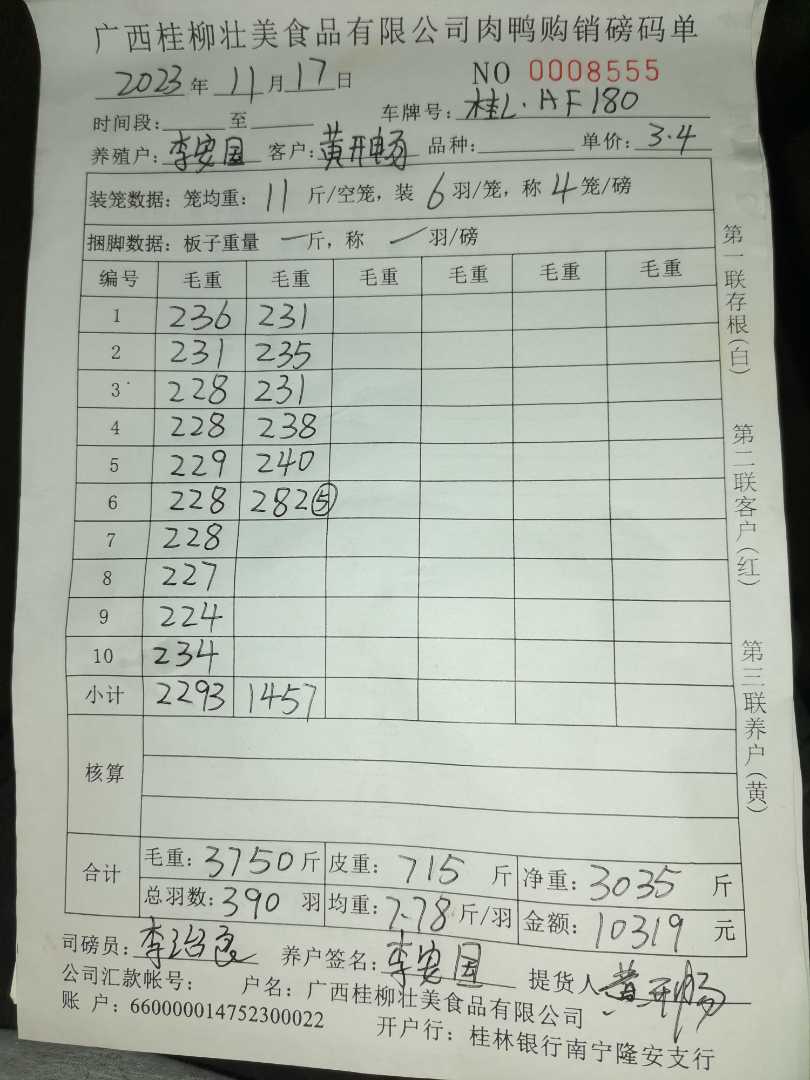 广西桂柳壮美食品有限公司肉鸭购销磅码单
2023年 11月17日 NO 0008555
时间段: 至 车牌号: 桂L·AF180
养殖户: 李安国 客户: 黄开畅 品种: 单价: 3.4
装笼数据: 笼均重: 11 斤/空笼, 装 6 羽/笼, 称 4 笼/磅
捆脚数据: 板子重量 一 斤, 称 一 羽/磅
编号 毛重 毛重 毛重 毛重 毛重 毛重
1 236 231
2 231 235
3 228 231
4 228 238
5 229 240
6 228 282⑤
7 228
8 227
9 224
10 234
小计 2293 1457
核算
合计 毛重: 3750斤 皮重: 715 斤 净重: 3035 斤
总羽数: 390 羽 均重: 7.78斤/羽 金额: 10319 元
司磅员: 李治良 养户签名: 李安国 提货人 黄开畅
公司汇款帐号: 户名: 广西桂柳壮美食品有限公司
账 户: 660000014752300022 开户行: 桂林银行南宁隆安支行
第一联存根(白)
第二联客户(红)
第三联养户(黄)